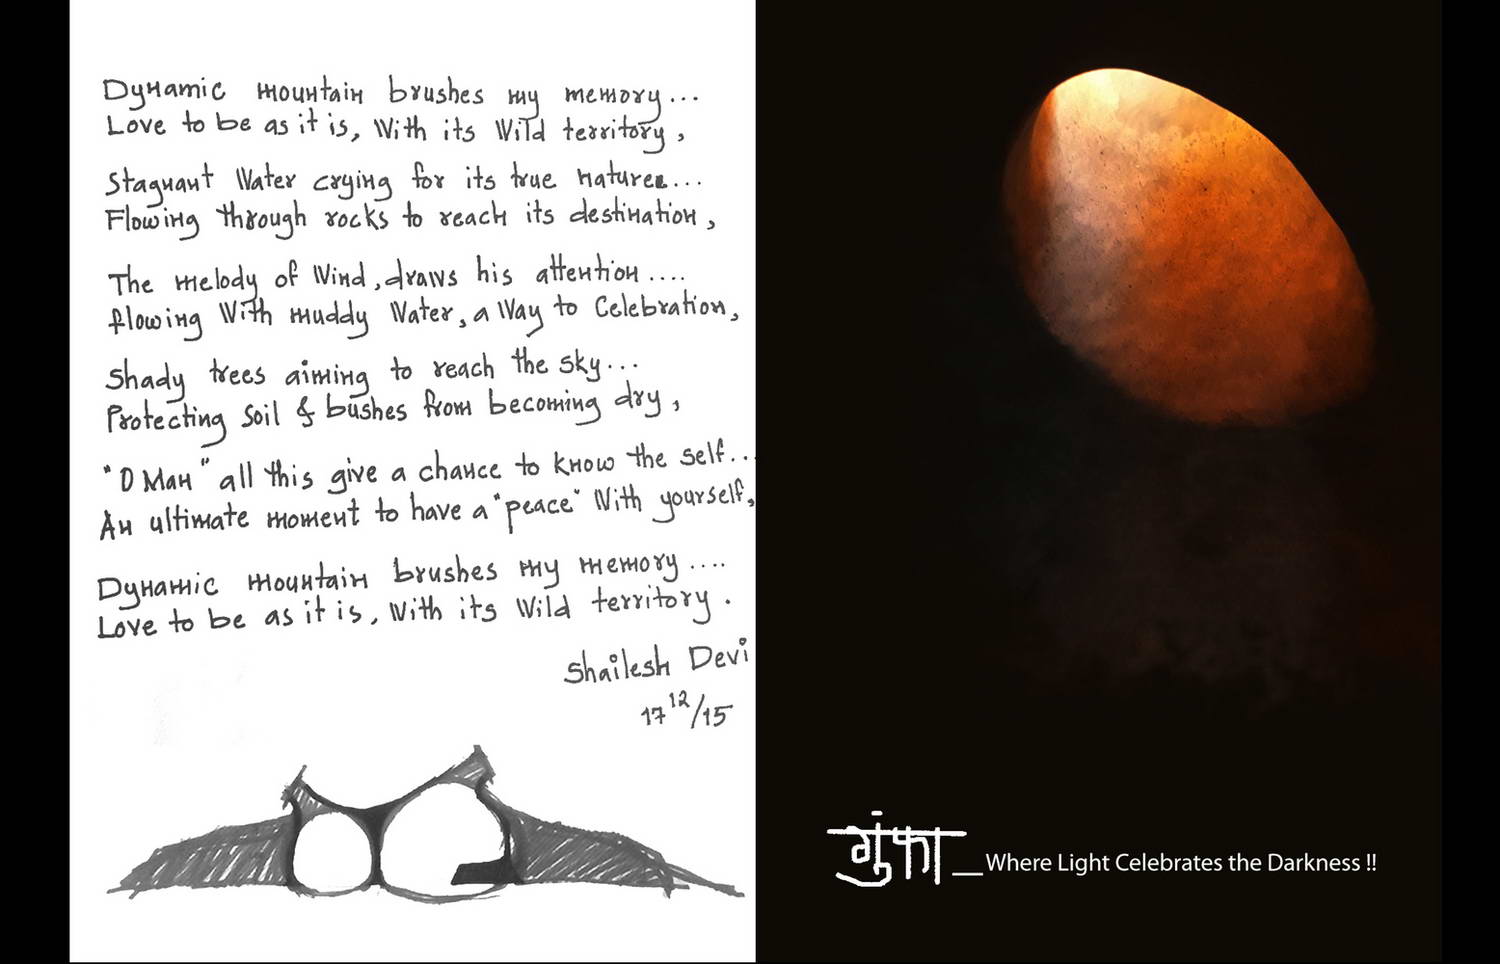 Dynamic mountain brushes my memory...
Love to be as it is, With its Wild territory,
Stagnant Water crying for its true nature...
Flowing through rocks to reach its destination,
The melody of Wind, draws his attention....
flowing With muddy Water, a Way to Celebration,
Shady trees aiming to reach the sky...
Protecting Soil & bushes from becoming dry,
"O Man" all this give a chance to know the self...
An ultimate moment to have a "peace" With yourself,
Dynamic mountain brushes my memory....
Love to be as it is, With its Wild territory.
Shailesh Devi
17 12/15
गुंफा_Where Light Celebrates the Darkness !!